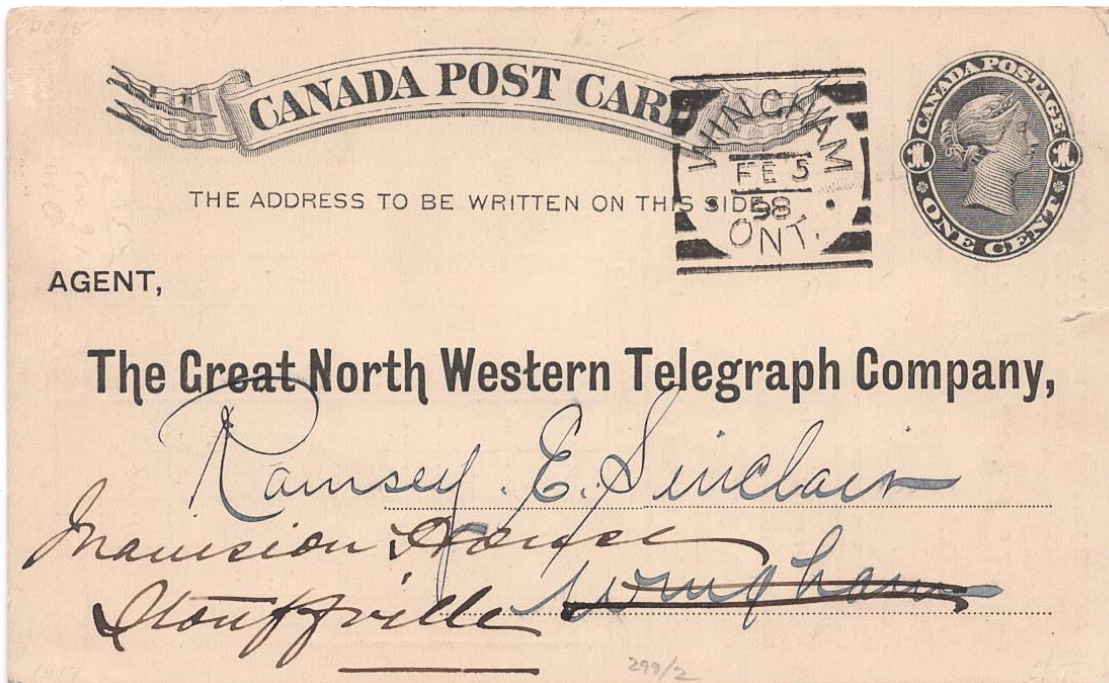 CANADA POST CARD
CANADA POSTAGE
ONE CENT
WINGHAM
FE 5
98
ONT.
THE ADDRESS TO BE WRITTEN ON THIS SIDE
AGENT,
The Great North Western Telegraph Company,
Ramsey. E. Sinclair
Mansion House
Wingham
Stouffville
299/2